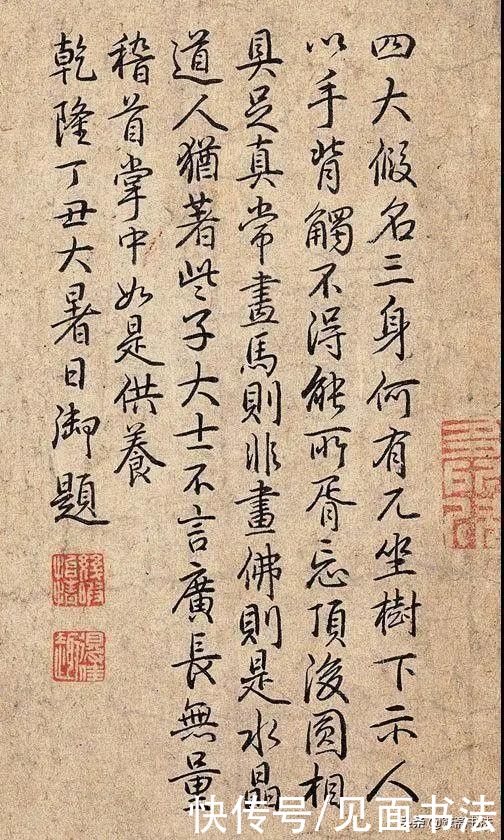 四大假名三身何有兀坐樹下示人
以手背觸不得能所胥忘頂後圓相
具足真常畫馬則非畫佛則是水晶
道人猶著些子大士不言廣長無量
稽首掌中如是供養
乾隆丁丑大暑日御題
快传号/见面书法